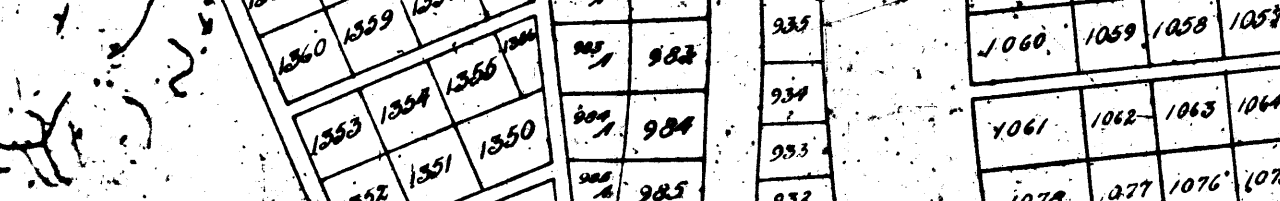 1360 1359
1353 1354 1355 1356
1351 1350
983 A 983
984 A 984
985 A 985
935
934
933
932
1060 1059 1058 1057
1061 1062 1063 1064
1078 1077 1076